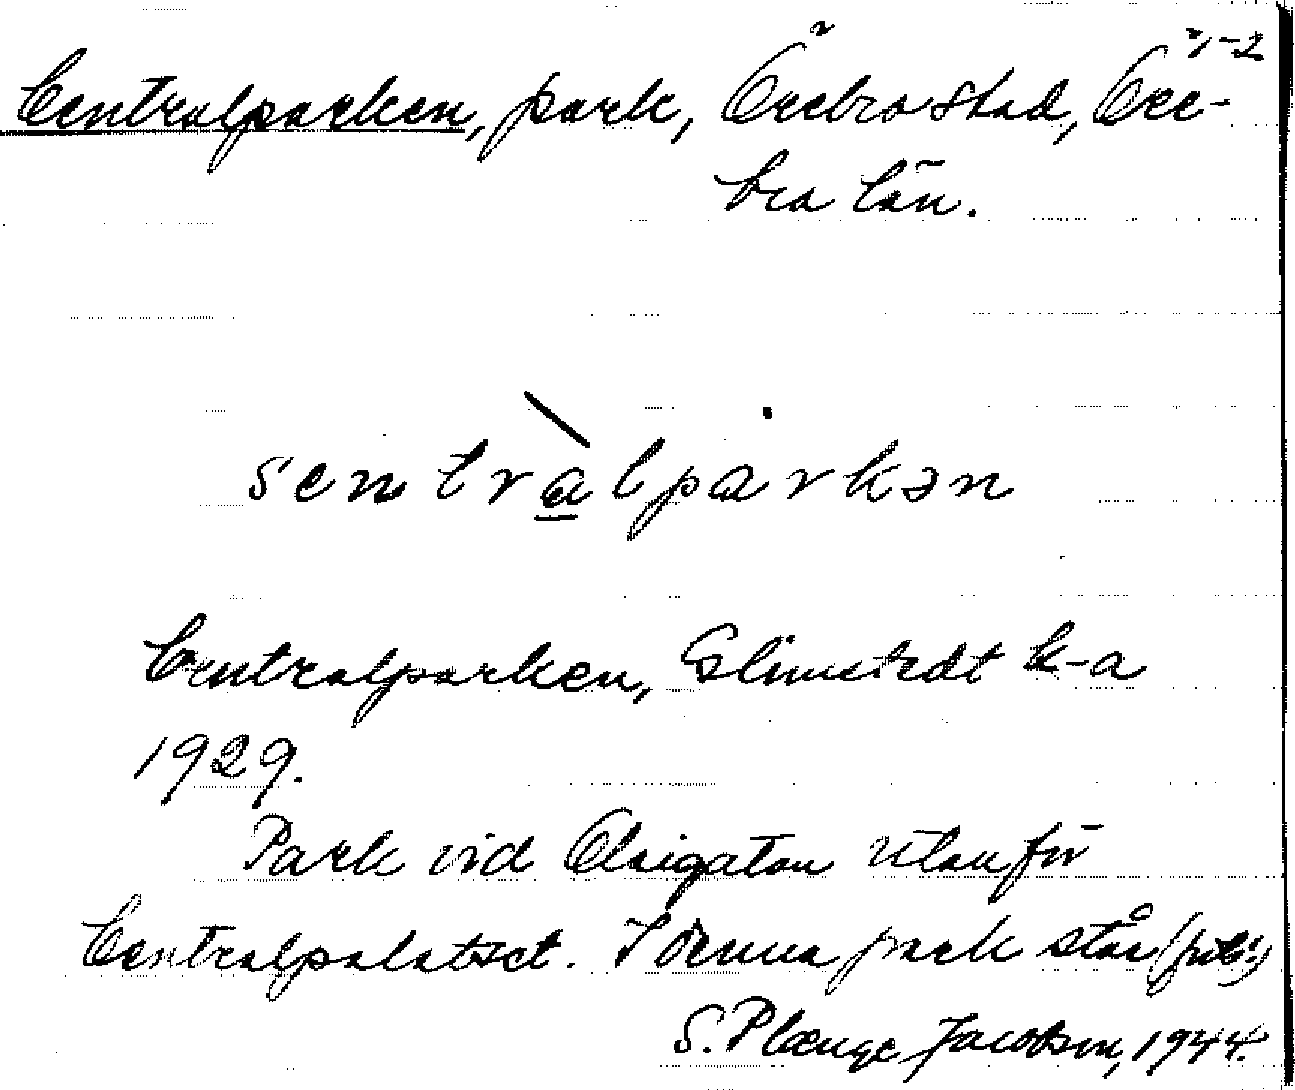 1-2
Centralparken, park, Örebro stad, Öre-
bro län.
sentràlpårkən
Centralparken, Glimstedt k-a
1929.
Park vid Olaigatan utanför
Centralpalatset. I denna park står
S. Plænge Jacobson, 1944.